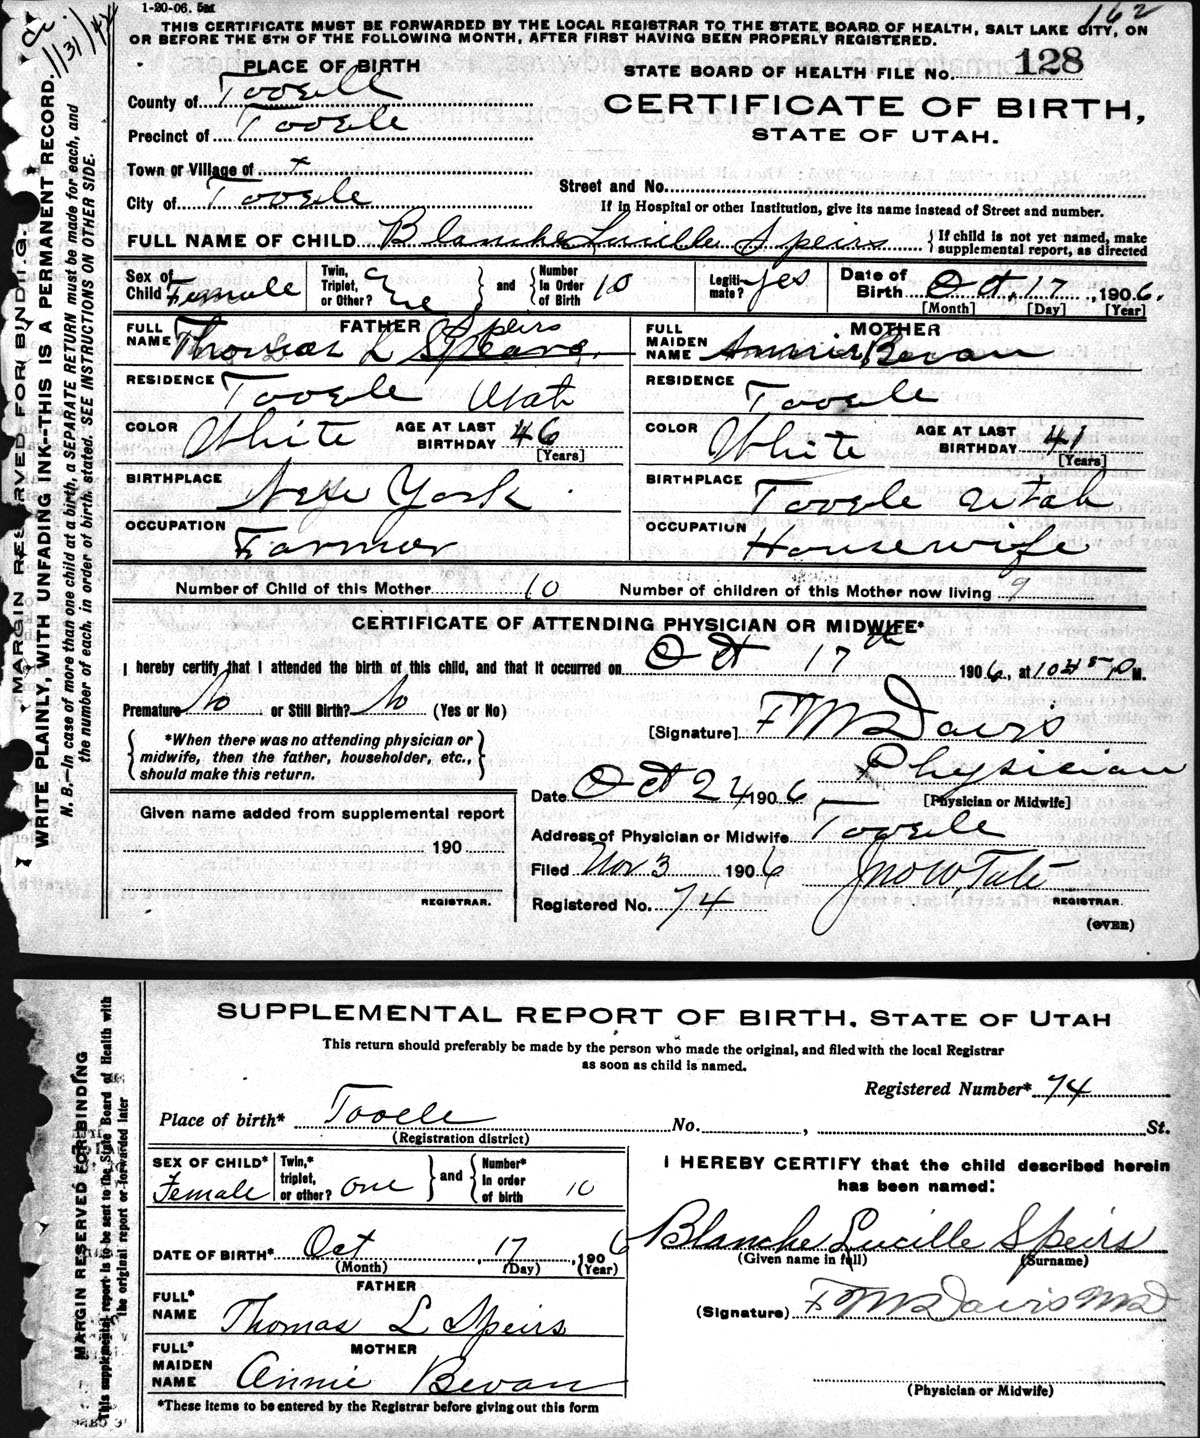 1-20-06. 5M
162
THIS CERTIFICATE MUST BE FORWARDED BY THE LOCAL REGISTRAR TO THE STATE BOARD OF HEALTH, SALT LAKE CITY, ON
OR BEFORE THE 5TH OF THE FOLLOWING MONTH, AFTER FIRST HAVING BEEN PROPERLY REGISTERED.
PLACE OF BIRTH
STATE BOARD OF HEALTH FILE No. 128
County of Tooele
CERTIFICATE OF BIRTH,
Precinct of Tooele
STATE OF UTAH.
Town or Village of x
Street and No.
City of Tooele
If in Hospital or other Institution, give its name instead of Street and number.
FULL NAME OF CHILD Blanche Lucille Speirs { If child is not yet named, make supplemental report, as directed
Sex of Child Female Twin, Triplet, or Other? One } and { Number in Order of Birth 10 Legitimate? yes Date of Birth Oct. 17, 1906.
[Month] [Day] [Year]
FATHER
FULL NAME Thomas L Speirs
MOTHER
FULL MAIDEN NAME Annie Bevan
RESIDENCE Tooele Utah
RESIDENCE Tooele
COLOR White AGE AT LAST BIRTHDAY 46 [Years]
COLOR White AGE AT LAST BIRTHDAY 41 [Years]
BIRTHPLACE New York
BIRTHPLACE Tooele Utah
OCCUPATION Farmer
OCCUPATION Housewife
Number of Child of this Mother 10 Number of children of this Mother now living 9
CERTIFICATE OF ATTENDING PHYSICIAN OR MIDWIFE*
I hereby certify that I attended the birth of this child, and that it occurred on Oct 17th 1906, at M.
Premature No or Still Birth? No (Yes or No)
[Signature] F M Davis
{ *When there was no attending physician or midwife, then the father, householder, etc., should make this return. }
Physician
Date Oct 24 1906 [Physician or Midwife]
Given name added from supplemental report
Address of Physician or Midwife Tooele
190
Filed Nov 3 1906 Jno W, Tate
REGISTRAR.
Registered No. 74 REGISTRAR.
(OVER)
MARGIN RESERVED FOR BINDING.
WRITE PLAINLY, WITH UNFADING INK--THIS IS A PERMANENT RECORD.
N. B.--In case of more than one child at a birth, a SEPARATE RETURN must be made for each, and
the number of each, in order of birth, stated. SEE INSTRUCTIONS ON OTHER SIDE.
SUPPLEMENTAL REPORT OF BIRTH, STATE OF UTAH
This return should preferably be made by the person who made the original, and filed with the local Registrar
as soon as child is named.
Registered Number* 74
Place of birth* Tooele No. , St.
(Registration district)
SEX OF CHILD* Female Twin,* triplet, or other? One } and { Number* in order of birth 10
I HEREBY CERTIFY that the child described herein
has been named:
DATE OF BIRTH* Oct 17, 1906
(Month) (Day) (Year)
Blanche Lucille Speirs
(Given name in full) (Surname)
FATHER
FULL* NAME Thomas L Speirs
(Signature) F M Davis MD
MOTHER
FULL* MAIDEN NAME Annie Bevan
(Physician or Midwife)
*These items to be entered by the Registrar before giving out this form
MARGIN RESERVED FOR BINDING
This supplemental report is to be sent to the State Board of Health with
the original report or forwarded later